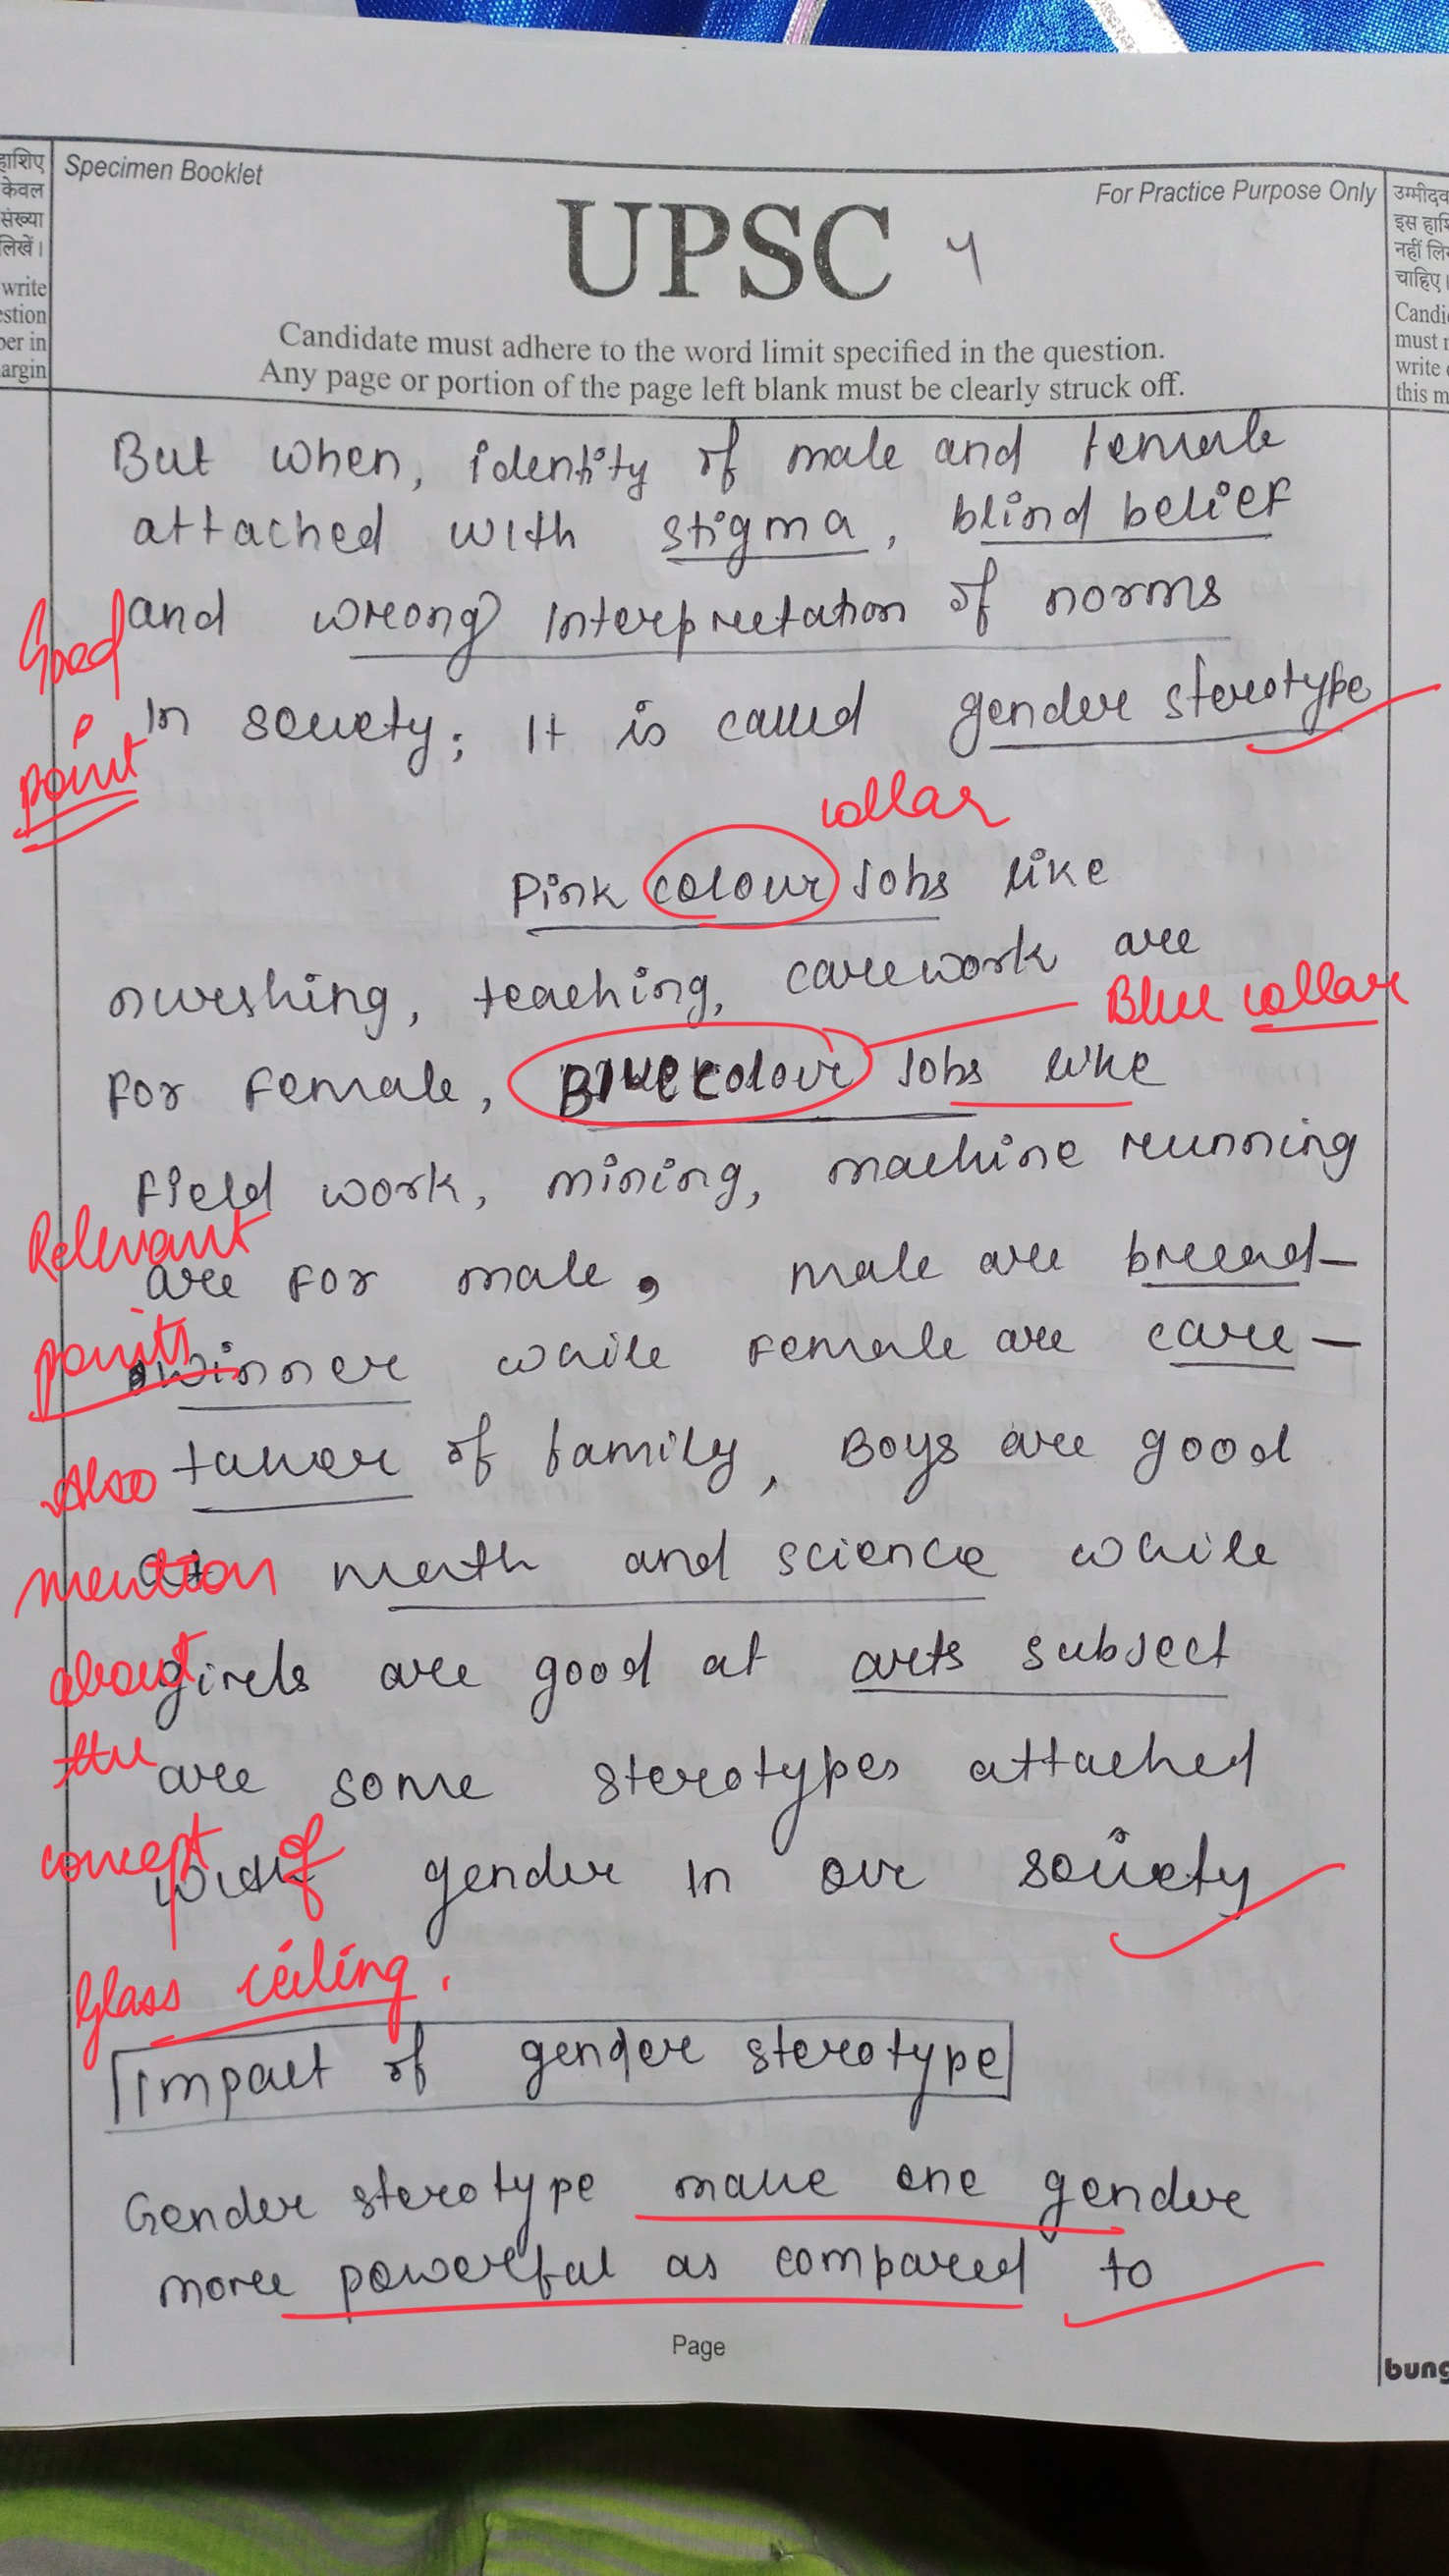 हाशिए
केवल
संख्या
लिखें।
write
estion
ber in
argin
Specimen Booklet
For Practice Purpose Only
UPSC 4
Candidate must adhere to the word limit specified in the question.
Any page or portion of the page left blank must be clearly struck off.
उम्मीदव
इस हाशि
नहीं लि
चाहिए।
Candi
must n
write
this m
But when, identity of male and female
attached with stigma, blind belief
and wrong interpretation of norms
In society; It is called gender sterotype
Good
point
collar
Pink colour Jobs like
nurshing, teaching, carework are
Blue collar
For Female, Blue colour Jobs like
Field work, mining, machine running
are For male, male are bread-
winner while Female are care-
taker of family, Boys are good
at math and science while
girls are good at arts subject
are some sterotypes attached
with gender in our society
Relevant
points
Also
mention
about
the
concept of
Glass ceiling.
Impact of gender sterotype
Gender sterotype make one gender
more powerful as compared to
Page
bung